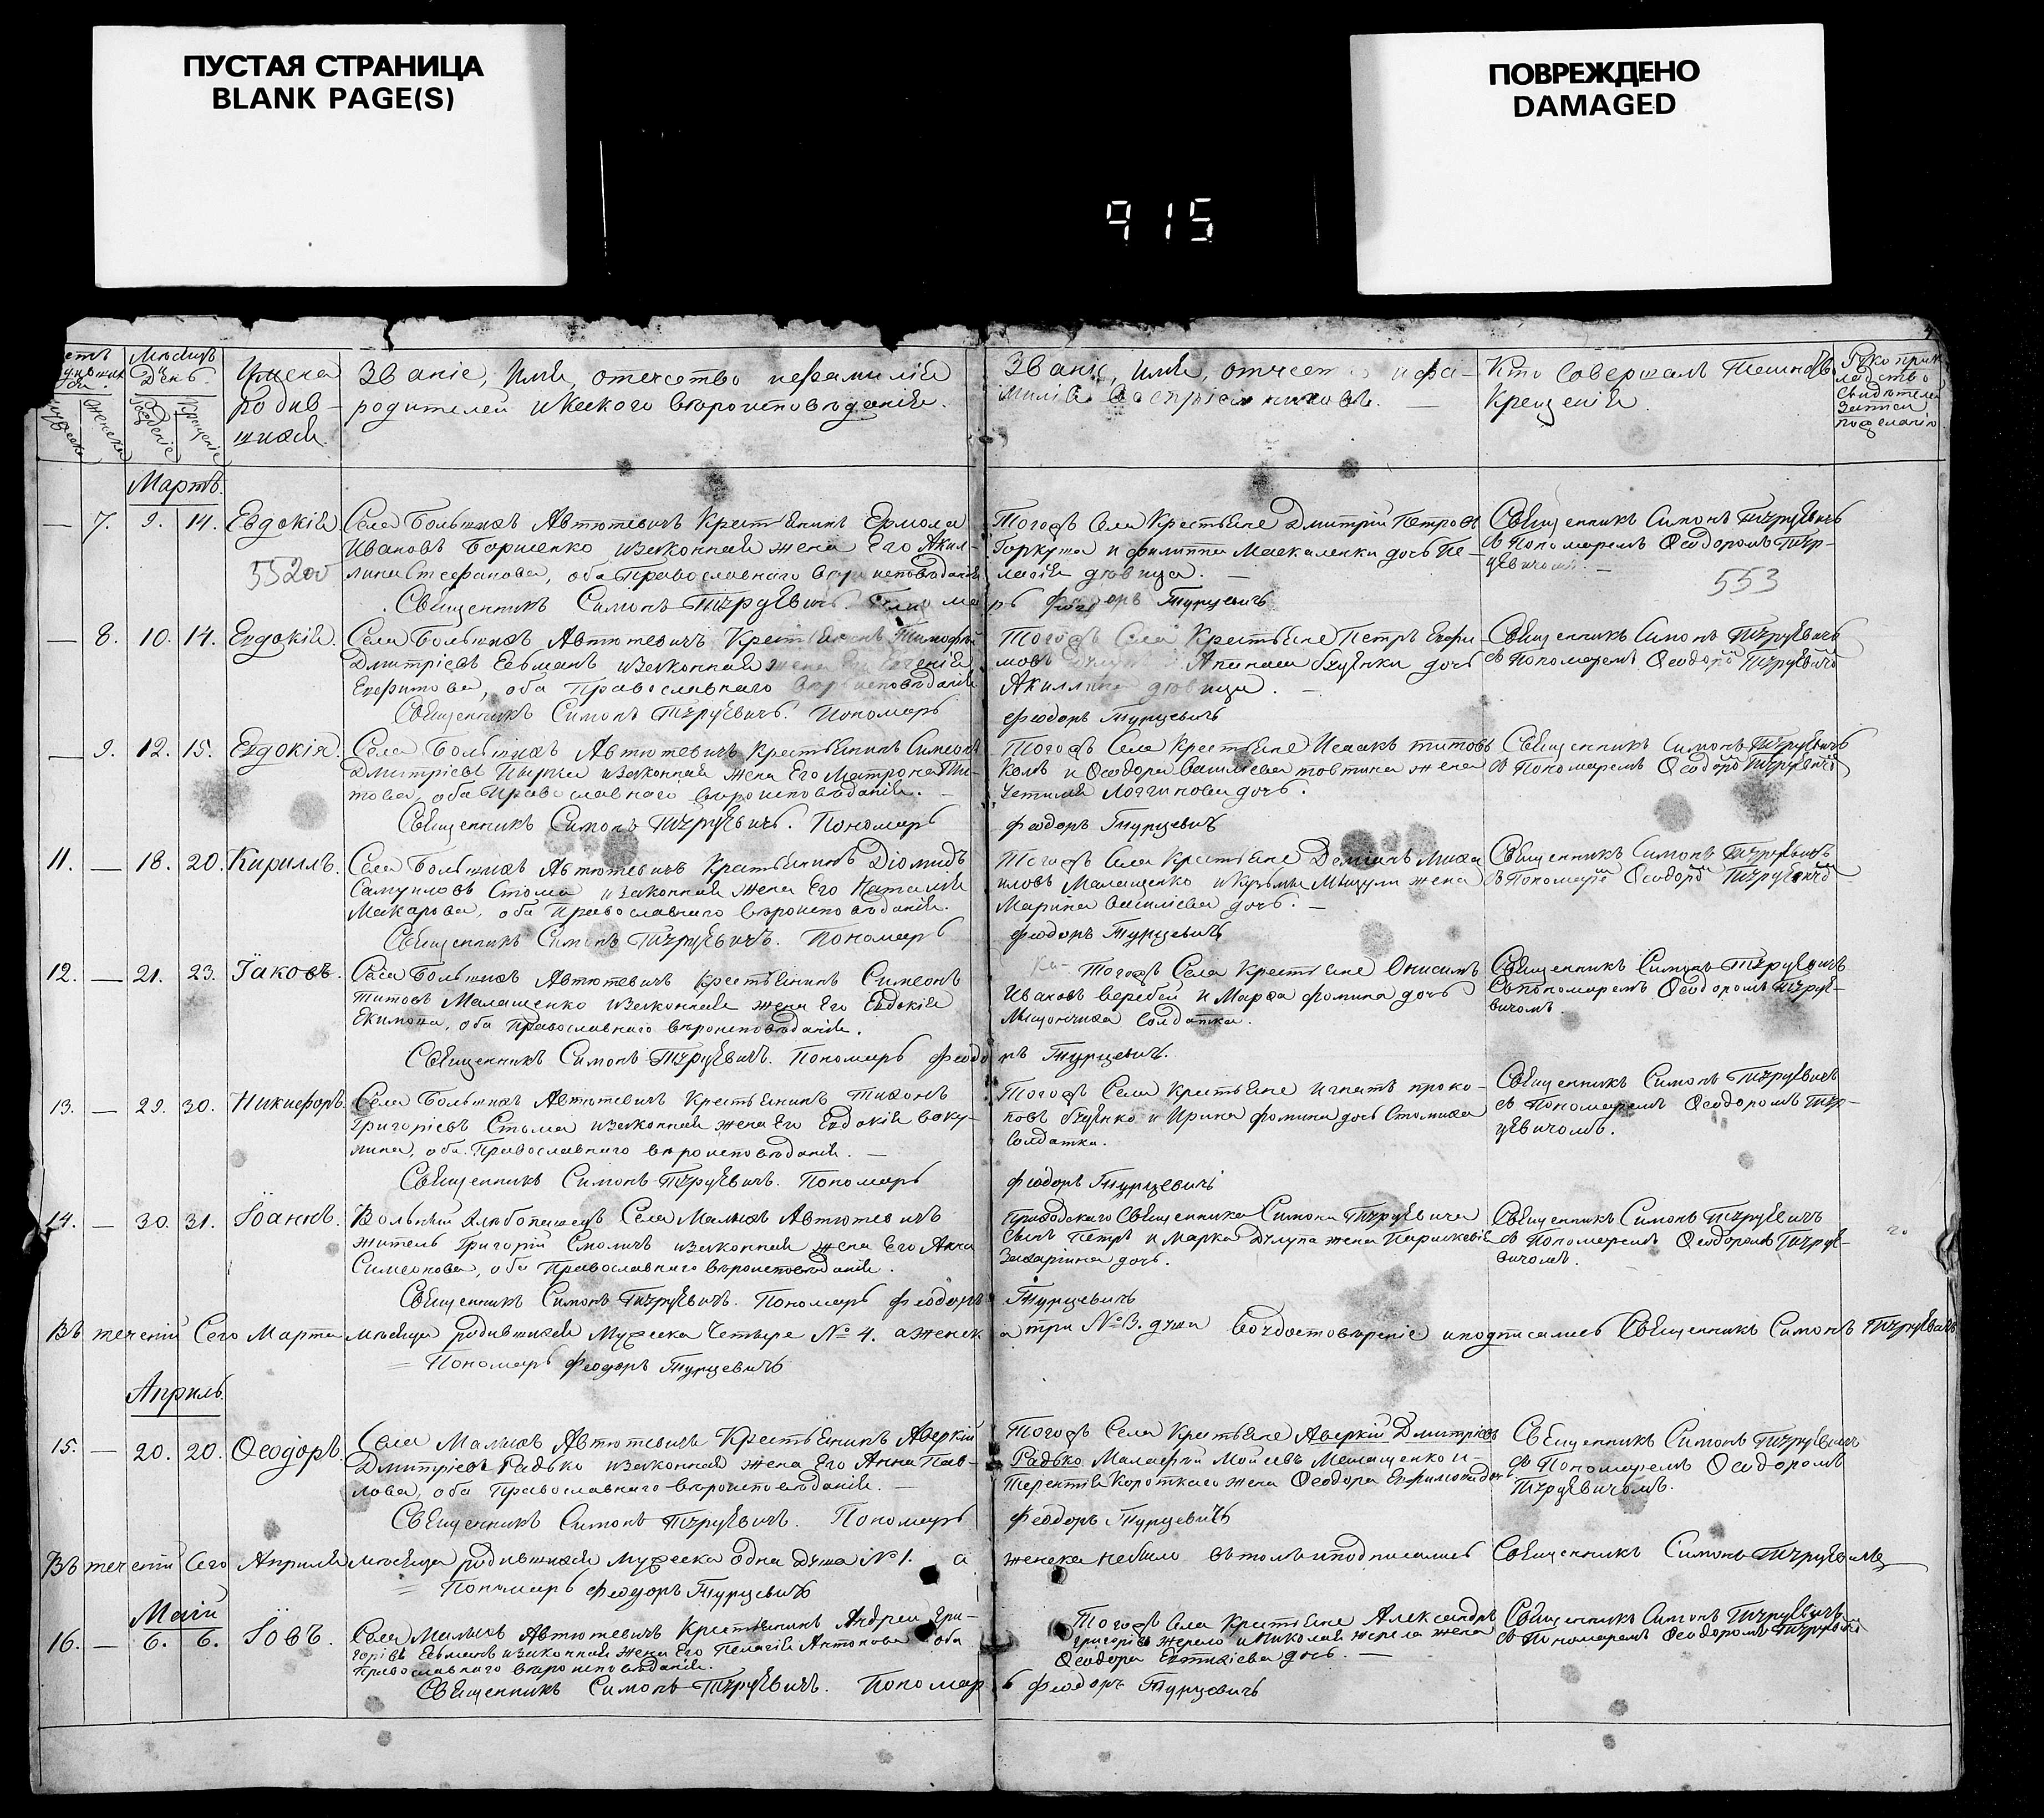 ПУСТАЯ СТРАНИЦА
BLANK PAGE(S)
ПОВРЕЖДЕНО
DAMAGED
915
Мѣсяцъ
День
Имена
родив-
шихся
Званіе, Имя, отечество и фамилія
родителей и какого вѣроисповѣданія.
Званіе, Имя, отчест и фа-
милія воспріемниковъ. —
Кто Совершалъ
Крещенія
Рукоприк
ладство
Свидѣтелей
Записи
по желанію
Мартъ.
— 7. 9. 14. Евдокія
Села Большихъ Автютевичъ Крестьянинъ Ермола
Ивановъ Борисенко и законная жена Его Акил-
лина Стефанова, оба Православнаго вѣроисповѣданія
Священникъ Симонъ Турцевичъ. Пономарь Феодоръ Турцевичъ
Тогожъ Села Крестьяне Дмитрій Петровъ
Горкуша и Филиппа Маскаленки дочь Пе-
лагія дѣвица. —
Священникъ Симонъ Турцевичъ
съ Пономаремъ Ѳеодоромъ Тур-
цевичомъ. —
553
— 8. 10. 14. Евдокія.
Села Большихъ Автютевичъ Крестьянинъ Тимофей
Дмитріевъ и законная жена Его Евгенія
оба Православнаго вѣроисповѣданія
Священникъ Симонъ Турцевичъ. Пономарь
Феодоръ Турцевичъ
Тогожъ Села Крестьяне Петръ Ефи-
мовъ дочь
Акиллина дѣвица. —
Священникъ Симонъ Турцевичъ
съ Пономаремъ Ѳеодоромъ Турцевичомъ
— 9. 12. 15. Евдокія.
Села Большихъ Автютевичъ Крестьянинъ Симеонъ
Дмитріевъ и законная жена Его Матрона Ти-
това, оба Православнаго вѣроисповѣданія. —
Священникъ Симонъ Турцевичъ. Пономарь
Феодоръ Турцевичъ
Тогожъ Села Крестьяне Исаакъ Титовъ
и Ѳеодора Василіева жена
дочь.
Священникъ Симонъ Турцевичъ
съ Пономаремъ Ѳеодоромъ Турцевичомъ
11. — 18. 20. Кириллъ.
Села Большихъ Автютевичъ Крестьянинъ Діомидъ
Самуиловъ Стома и законная жена Его Наталія
Макарова, оба Православнаго вѣроисповѣданія.
Священникъ Симонъ Турцевичъ. Пономарь
Феодоръ Турцевичъ
Тогожъ Села Крестьяне Даміанъ Миха
иловъ Малащенко и Кузьмы жена
Марина Василіева дочь. —
Священникъ Симонъ Турцевичъ
съ Пономаремъ Ѳеодоромъ Турцевичомъ
12. — 21. 23. Іаковъ.
Села Большихъ Автютевичъ Крестьянинъ Симеонъ
Титовъ Малащенко и законная жена Его Евдокія
Екимова, оба Православнаго вѣроисповѣданія.
Священникъ Симонъ Турцевичъ. Пономарь Феодоръ Турцевичъ.
Тогожъ Села Крестьяне Онисимъ
Ивановъ Веребей и Марфа Фомина дочь
Солдатка.
Священникъ Симонъ Турцевичъ
съ Пономаремъ Ѳеодоромъ Турце-
вичомъ.
13. — 29. 30. Никифоръ.
Села Большихъ Автютевичъ Крестьянинъ Тихонъ
Григоріевъ Стома и законная жена Его Евдокія Воку-
лина, оба Православнаго вѣроисповѣданія. —
Священникъ Симонъ Турцевичъ. Пономарь
Феодоръ Турцевичъ
Тогожъ Села Крестьяне Игнатъ Проко-
повъ и Ирина Фомина дочь Стомиха
Солдатка.
Священникъ Симонъ Турцевичъ
съ Пономаремъ Ѳеодоромъ Тур-
цевичомъ.
14. — 30. 31. Іоаннъ.
Вольный Хлѣбопашецъ Села Малыхъ Автютевичъ
житель Григорій Смоличъ и законная жена Его Анна
Симеонова, оба Православнаго вѣроисповѣданія.
Священникъ Симонъ Турцевичъ. Пономарь Феодоръ Турцевичъ
Приходскаго Священника Симона Турцевича
сынъ Петръ и Марка жена Параскевія
Захаріина дочь.
Священникъ Симонъ Турцевичъ
съ Пономаремъ Ѳеодоромъ Турце-
вичомъ.
Въ теченіи Сего Марта мѣсяца родившихся Мужеска Четыре № 4. а женск
а три № 3. душа подписались Священникъ Симонъ Турцевичъ
= Пономарь Феодоръ Турцевичъ
Апрѣль.
15. — 20. 20. Ѳеодоръ.
Села Малыхъ Автютевичъ Крестьянинъ Аверкій
Дмитріевъ Радько и законная жена Его Анна Пав-
лова, оба Православнаго вѣроисповѣданія. —
Священникъ Симонъ Турцевичъ. Пономарь
Феодоръ Турцевичъ
Тогожъ Села Крестьяне Аверкій Дмитріевъ
Радько Малафей Моисеевъ Малащенко и
Терентія Короткаго жена Ѳеодора
Священникъ Симонъ Турцевичъ
съ Пономаремъ Ѳеодоромъ
Турцевичомъ.
Въ теченіи Сего Апрѣля мѣсяца родившихся Мужеска одна душа № 1. а
женска небыло въ томъ и подписались Священникъ Симонъ Турцевичъ
= Пономарь Феодоръ Турцевичъ
Маій
16. — 6. 6. Іовъ.
Села Малыхъ Автютевичъ Крестьянинъ Андрей Гри-
горіевъ и законная жена Его Пелагія Антонова оба
Православнаго вѣроисповѣданія.
Священникъ Симонъ Турцевичъ. Пономарь Феодоръ Турцевичъ
Тогожъ Села Крестьяне Александръ
Григоріевъ Жерело и Николая Жерела жена
Ѳеодора дочь. —
Священникъ Симонъ Турцевичъ
съ Пономаремъ Ѳеодоромъ Турцевичомъ